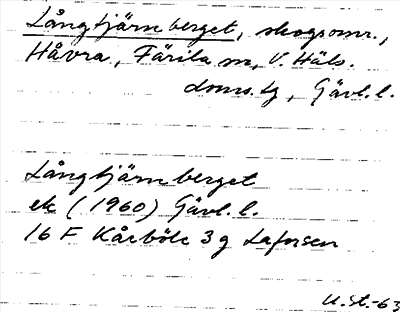 Långtjärnberget, skogsomr.,
Håvra, Färila sn, V. Häls.
doms.tg, Gävl.l.
Långtjärnberget
ek (1960) Gävl.l.
16 F Kårböle 3g Laforsen
U.St.-63